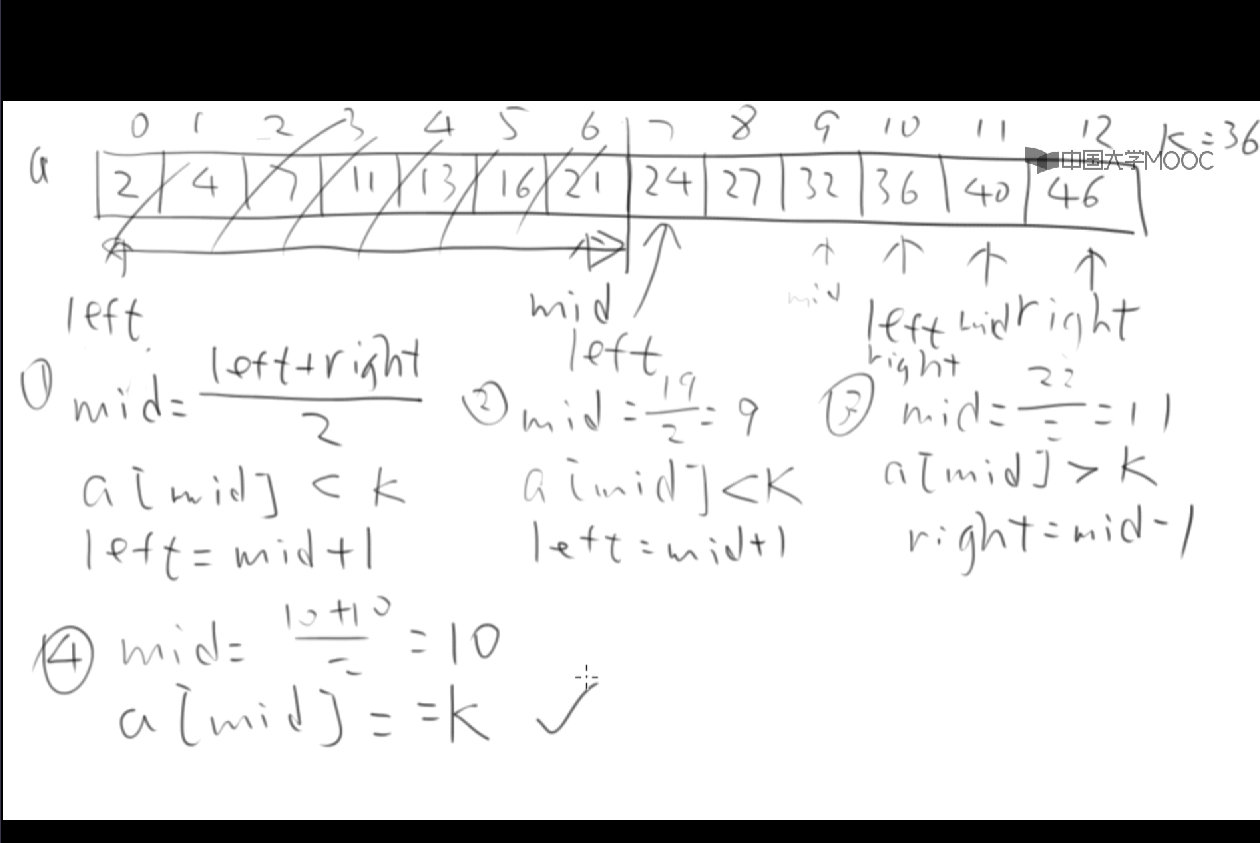 0 1 2 3 4 5 6 7 8 9 10 11 12 k=36
中国大学MOOC
a 2 4 7 11 13 16 21 24 27 32 36 40 46
left mid left mid left mid right
right
① mid= left+right / 2
a[mid] < k
left= mid+1
② mid = 19/2 = 9
a[mid] <K
left=mid+1
③ mid= 22/2 =11
a[mid] > k
right=mid-1
④ mid= 10+10 / 2 =10
a[mid] = =k ✓